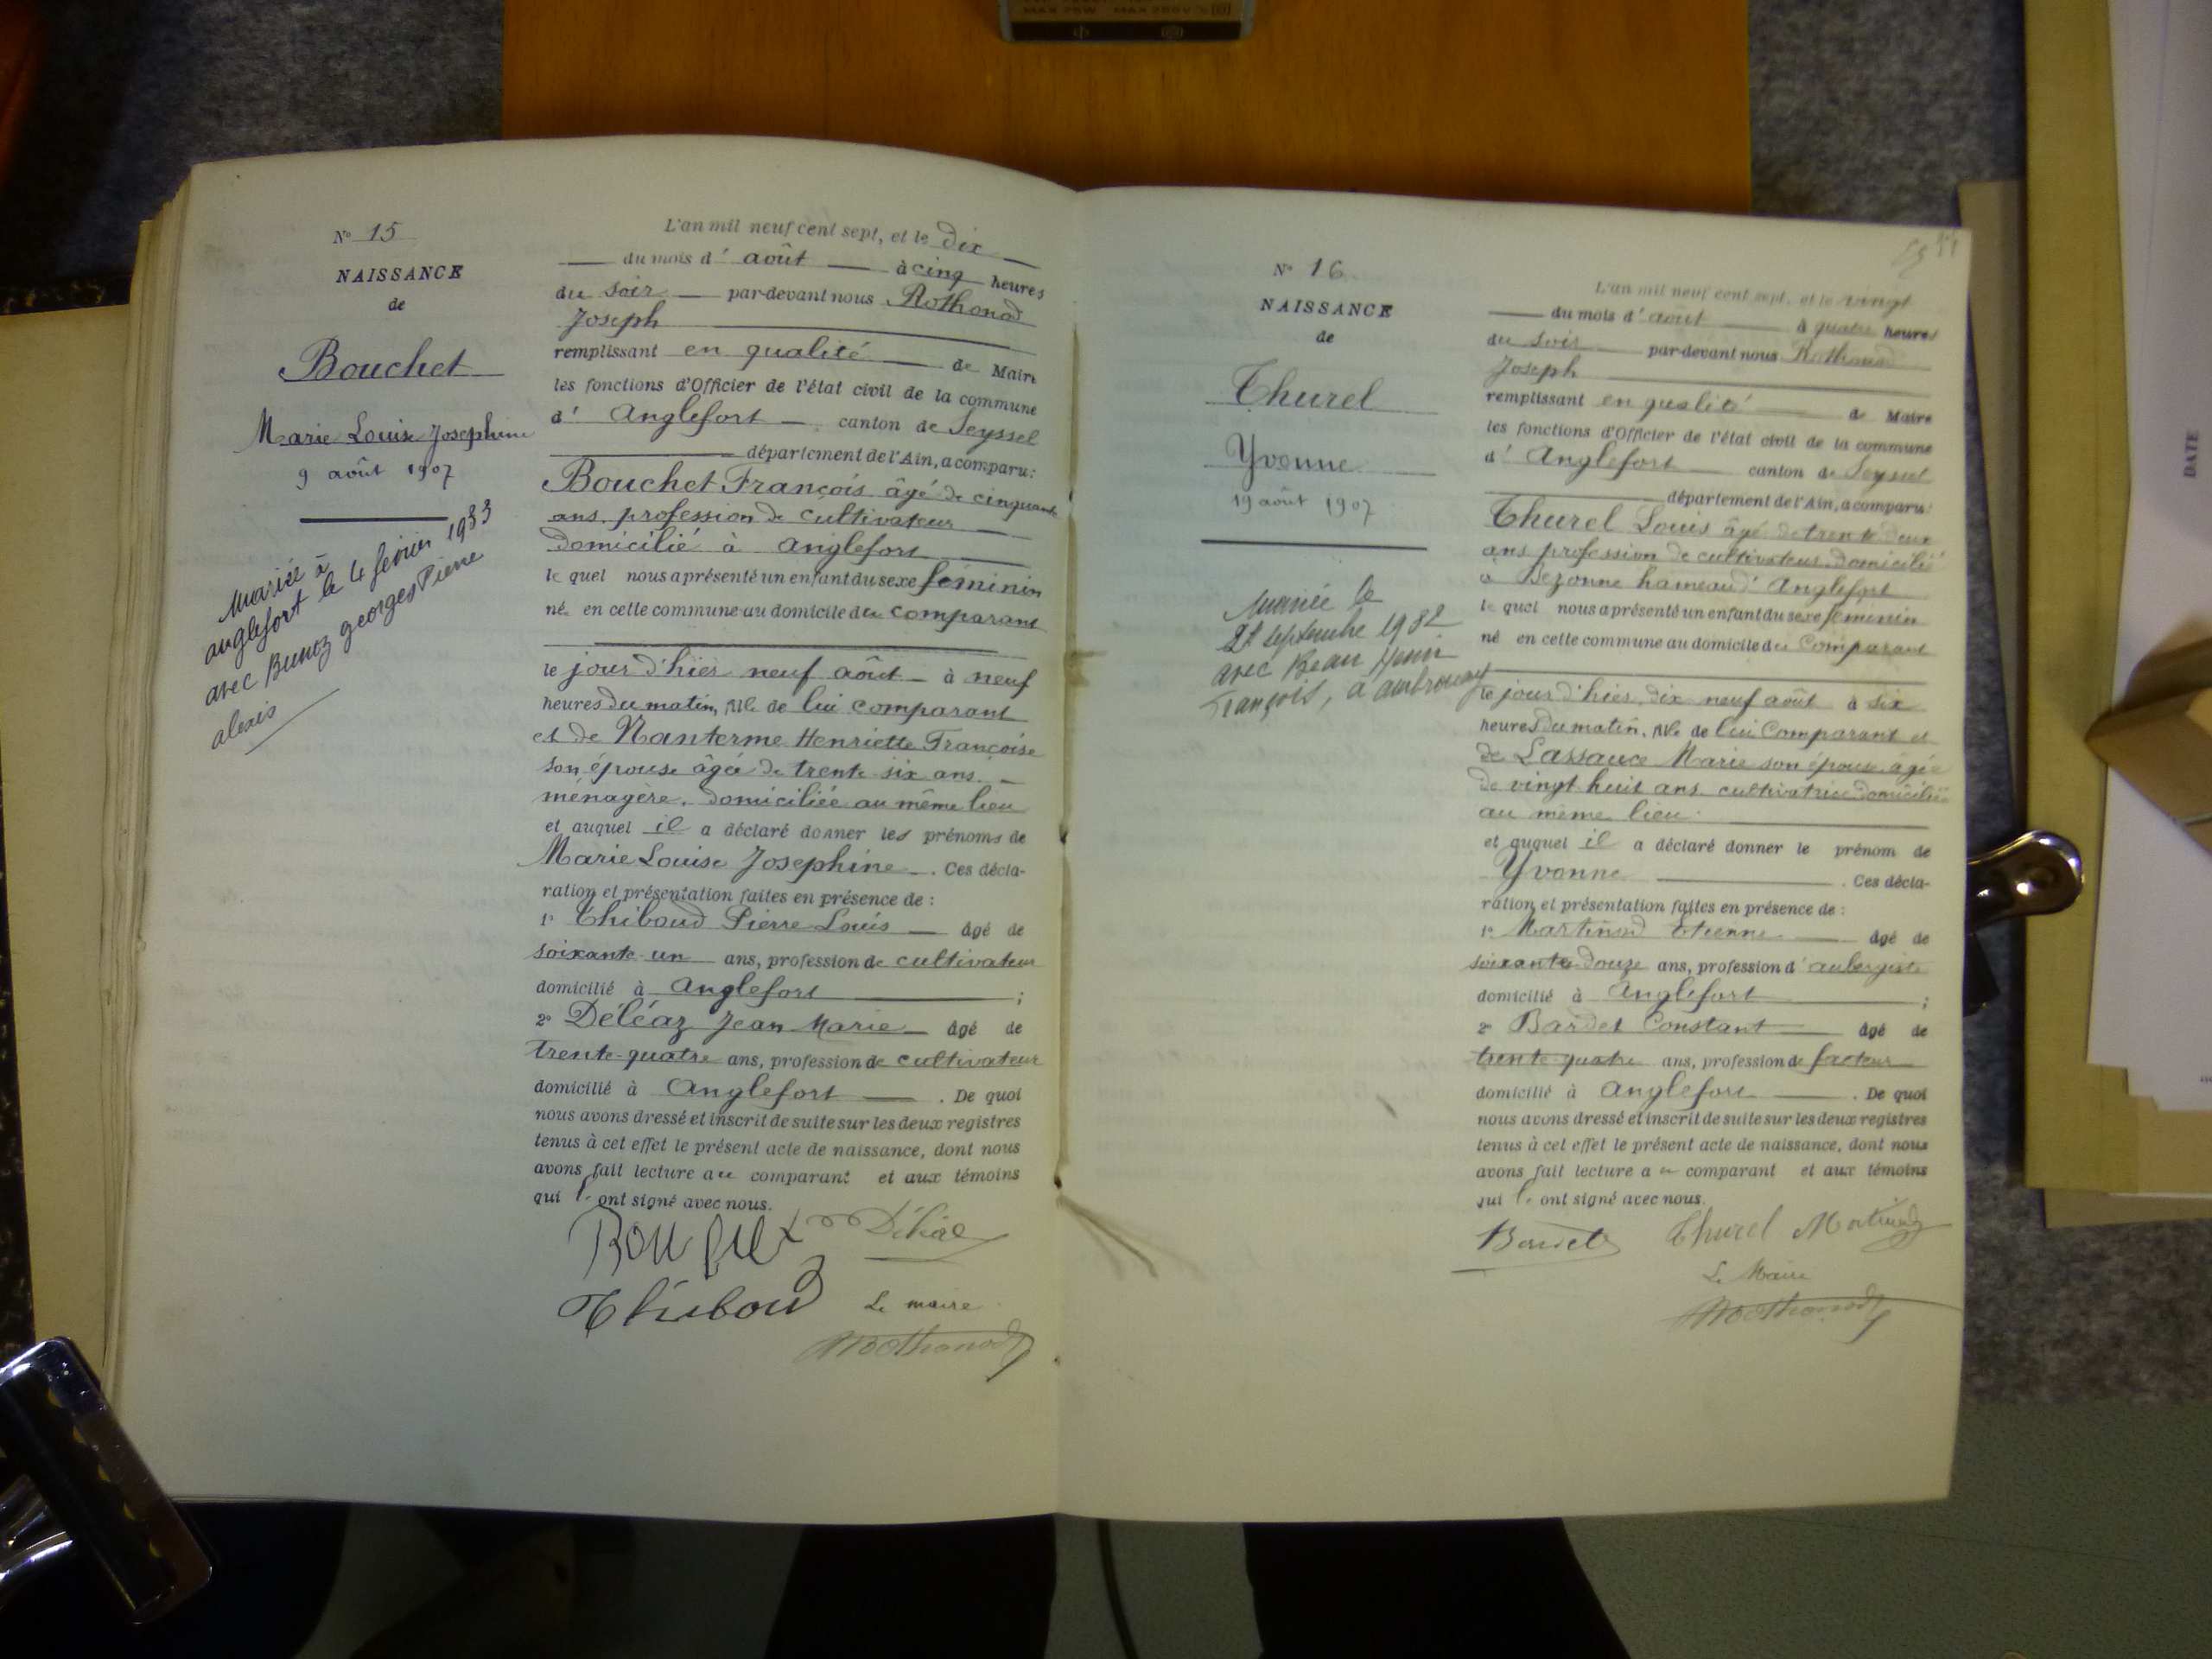 N° 15
NAISSANCE
de
Bouchet
Marie Louise Josephine
9 août 1907
Mariée à
anglefort le 4 février 1933
avec Bunoz georges Pierre
alexis
L'an mil neuf cent sept, et le dix
du mois d' août à cinq heures
du soir par-devant nous Rothonod
Joseph
remplissant en qualité de Maire
les fonctions d'Officier de l'état civil de la commune
d' Anglefort canton de Seyssel
département de l'Ain, a comparu:
Bouchet François âgé de cinquante
ans, profession de cultivateur
domicilié à Anglefort
le quel nous a présenté un enfant du sexe féminin
née en cette commune au domicile du comparant
le jour d'hier neuf août à neuf
heures du matin, fille de lui comparant
et de Nanterme Henriette Françoise
son épouse âgée de trente six ans
ménagère, domiciliée au même lieu
et auquel il a déclaré donner les prénoms de
Marie Louise Josephine. Ces décla-
ration et présentation faites en présence de :
1° Thiboud Pierre Louis âgé de
soixante-un ans, profession de cultivateur
domicilié à Anglefort ;
2° Déléaz Jean Marie âgé de
trente-quatre ans, profession de cultivateur
domicilié à Anglefort . De quoi
nous avons dressé et inscrit de suite sur les deux registres
tenus à cet effet le présent acte de naissance, dont nous
avons fait lecture au comparant et aux témoins
qui l'ont signé avec nous.
Thiboud Le maire
Rothonod
N° 16
NAISSANCE
de
Thurel
Yvonne
19 août 1907
Mariée le
septembre 1932
avec Beau Henri
François, à ambronay
L'an mil neuf cent sept, et le vingt
du mois d' août à quatre heures
du soir par-devant nous Rothonod
Joseph
remplissant en qualité de Maire
les fonctions d'Officier de l'état civil de la commune
d' Anglefort canton de Seyssel
département de l'Ain, a comparu:
Thurel Louis âgé de trente deux
ans profession de cultivateur, domicilié
à Bezonne hameau d'Anglefort
le quel nous a présenté un enfant du sexe féminin
né en cette commune au domicile du Comparant
le jour d'hier, dix neuf août à six
heures du matin, fille de lui Comparant et
de Lassauce Marie son épouse agée
de vingt huit ans cultivatrice domiciliée
au même lieu.
et auquel il a déclaré donner le prénom de
Yvonne . Ces décla-
ration et présentation faites en présence de :
1° Martinod Etienne âgé de
soixante-douze ans, profession d'aubergiste
domicilié à Anglefort ;
2° Bardet Constant âgé de
trente quatre ans, profession de facteur
domicilié à Anglefort . De quoi
nous avons dressé et inscrit de suite sur les deux registres
tenus à cet effet le présent acte de naissance, dont nous
avons fait lecture au comparant et aux témoins
qui l'ont signé avec nous.
Bardet Thurel Martinod
Le Maire
Rothonod
DATE